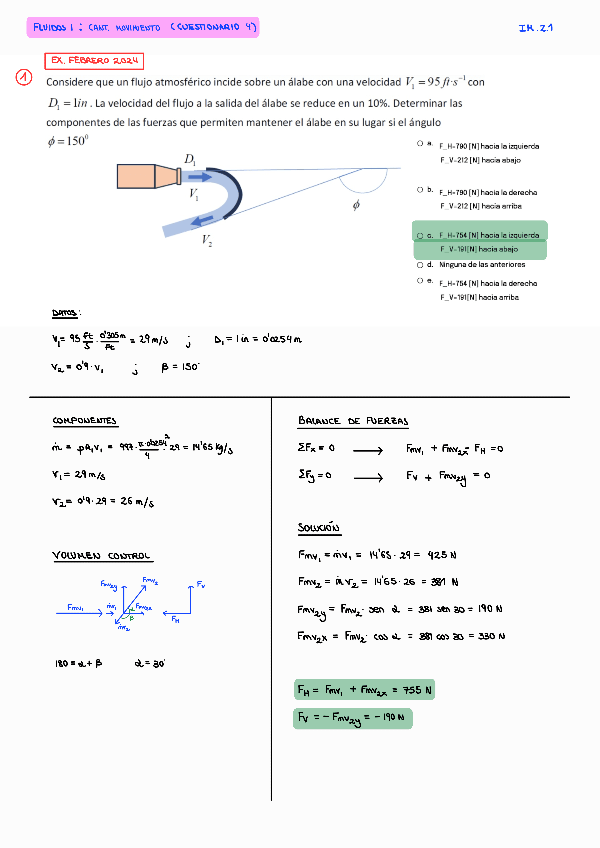 FLUIDOS 1 : CANT. MOVIMIENTO (CUESTIONARIO 4)
IM.2.1
EX. FEBRERO 2024
1
Considere que un flujo atmosférico incide sobre un álabe con una velocidad V₁ = 95 ft·s⁻¹ con
D₁ = 1in . La velocidad del flujo a la salida del álabe se reduce en un 10%. Determinar las
componentes de las fuerzas que permiten mantener el álabe en su lugar si el ángulo
ϕ = 150⁰
D₁
V₁
V₂
ϕ
a. F_H=790 [N] hacia la izquierda
F_V=212 [N] hacia abajo
b. F_H=790 [N] hacia la derecha
F_V=212 [N] hacia arriba
c. F_H=754 [N] hacia la izquierda
F_V=191[N] hacia abajo
d. Ninguna de las anteriores
e. F_H=754 [N] hacia la derecha
F_V=191[N] hacia arriba
DATOS:
V₁= 95 ft/s · 0'305m/ft = 29 m/s ; D₁ = 1 in = 0'0254 m
V₂ = 0'9 · V₁ ; β = 150°
COMPONENTES
ṁ = ρA₁V₁ = 997 · π·0'0254²/4 · 29 = 14'65 kg/s
V₁ = 29 m/s
V₂ = 0'9 · 29 = 26 m/s
VOLUMEN CONTROL
Fmv₁
ṁv₁
Fmv₂y
Fmv₂
Fmv₂x
α
β
ṁv₂
F_H
F_V
180 = α + β α = 30°
BALANCE DE FUERZAS
ΣFx = 0 → Fmv₁ + Fmv₂x - F_H = 0
ΣFy = 0 → F_V + Fmv₂y = 0
SOLUCIÓN
Fmv₁ = ṁv₁ = 14'65 · 29 = 425 N
Fmv₂ = ṁv₂ = 14'65 · 26 = 381 N
Fmv₂y = Fmv₂ · sen α = 381 sen 30 = 190 N
Fmv₂x = Fmv₂ · cos α = 381 cos 30 = 330 N
F_H = Fmv₁ + Fmv₂x = 755 N
F_V = - Fmv₂y = - 190 N